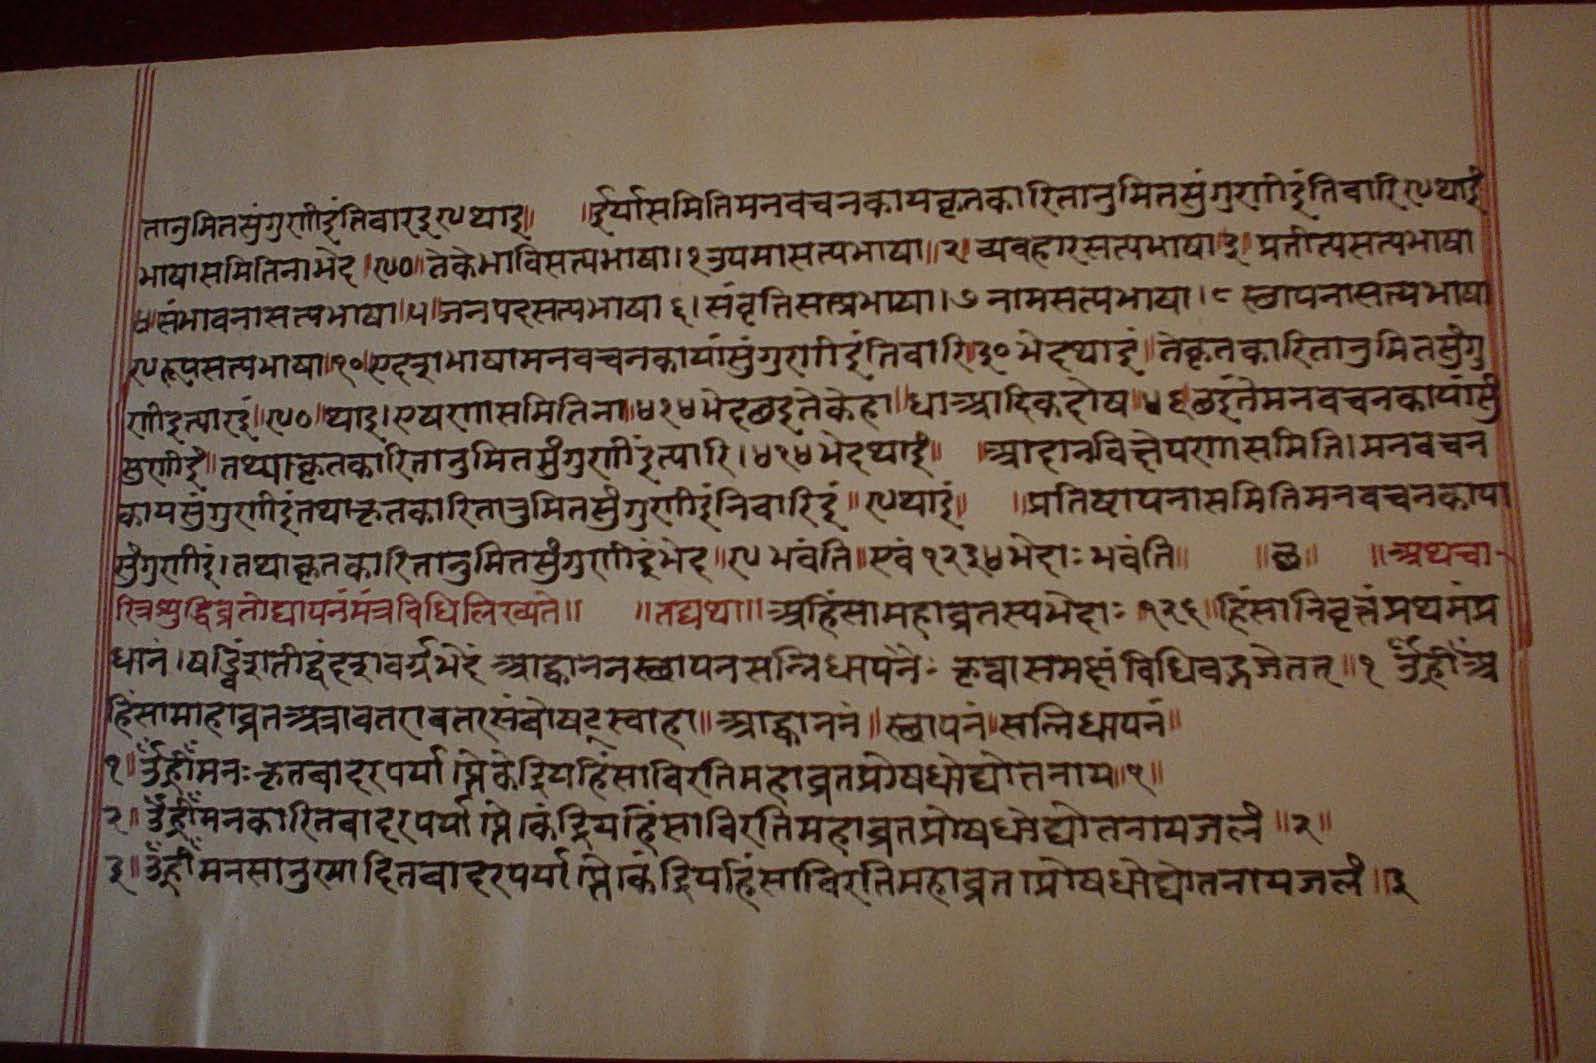 तानुमितसुंगुणीइंतिवारइ९थाइ॥ ॥ईर्यासमितिमनवचनकायकृतकारितानुमितसुंगुणीइंतिवारि९थाइं
भाषासमितिनाभेद॥९०॥तेकेभाविसत्यभाषा।१उपमासत्यभाषा॥२॥व्यवहारसत्यभाषा॥३॥प्रतीत्यसत्यभाषा
४॥संभावनासत्यभाषा॥५॥जनपदसत्यभाषा६।संवृतिसत्यभाषा।७नामसत्यभाषा।८स्थापनासत्यभाषा
९रूपसत्यभाषा॥१०॥एदशभाषामनवचनकायांसुंगुणीइंतिवारि॥३०भेदथाइं॥तेकृतकारितानुमितसुंगु
णीइत्यारइं॥९०॥थाइ।एषणासमितिना॥४१४भेदछइतेकेहा॥धाआदिकदोष॥४६छइंतेमनवचनकायांसुं
गुणीइं॥तथाकृतकारितानुमितसुंगुणीइंत्यारि।४१४भेदथाइं॥ ॥आदानविक्षेपणासमिति।मनवचन
कायसुंगुणीइंतथाकृतकारितानुमितसुंगुणीइंनिवारिइं॥९थाइं॥ ॥प्रतिषापनासमितिमनवचनकाया
सुंगुणीइं।तथाकृतकारितानुमितसुंगुणीइंभेद॥९भवंति॥एवं१२३४भेदाःभवंति॥ ॥छ॥ ॥अथचा-
रित्रशुद्धिव्रतोद्यापनंमंत्रविधिलिख्यते॥ ॥तद्यथा॥अहिंसामहाव्रतस्यभेदाः१२६॥हिंसानिवृत्तंप्रथमंप्र
धानं।षड्विंशतीद्वंदशवर्ग्गभेदं आह्वाननस्थापनसन्निधापनैःकृत्वासमक्षंविधिवद्यजेतत्॥१ ॐह्रीँअ
हिंसामाहाव्रतअत्रावतरावतरसंवोषट्स्वाहा॥आह्वाननं॥स्थापनं॥सन्निधापनं॥
१॥ॐह्रीँमनःकृतबादरपर्याप्तैकेंद्रियहिंसाविरतिमहाव्रतप्रोषधोद्योतनाय॥१॥
२॥ॐह्रीँमनकारितबादरपर्याप्तैकेंद्रियहिंसाविरतिमहाव्रतप्रोषधोद्योतनायजलं॥२॥
३॥ॐह्रीँमनसानुमोदितबादरपर्याप्तैकेंद्रियहिंसाविरतिमहाव्रतप्रोषधोद्योतनायजलं॥३